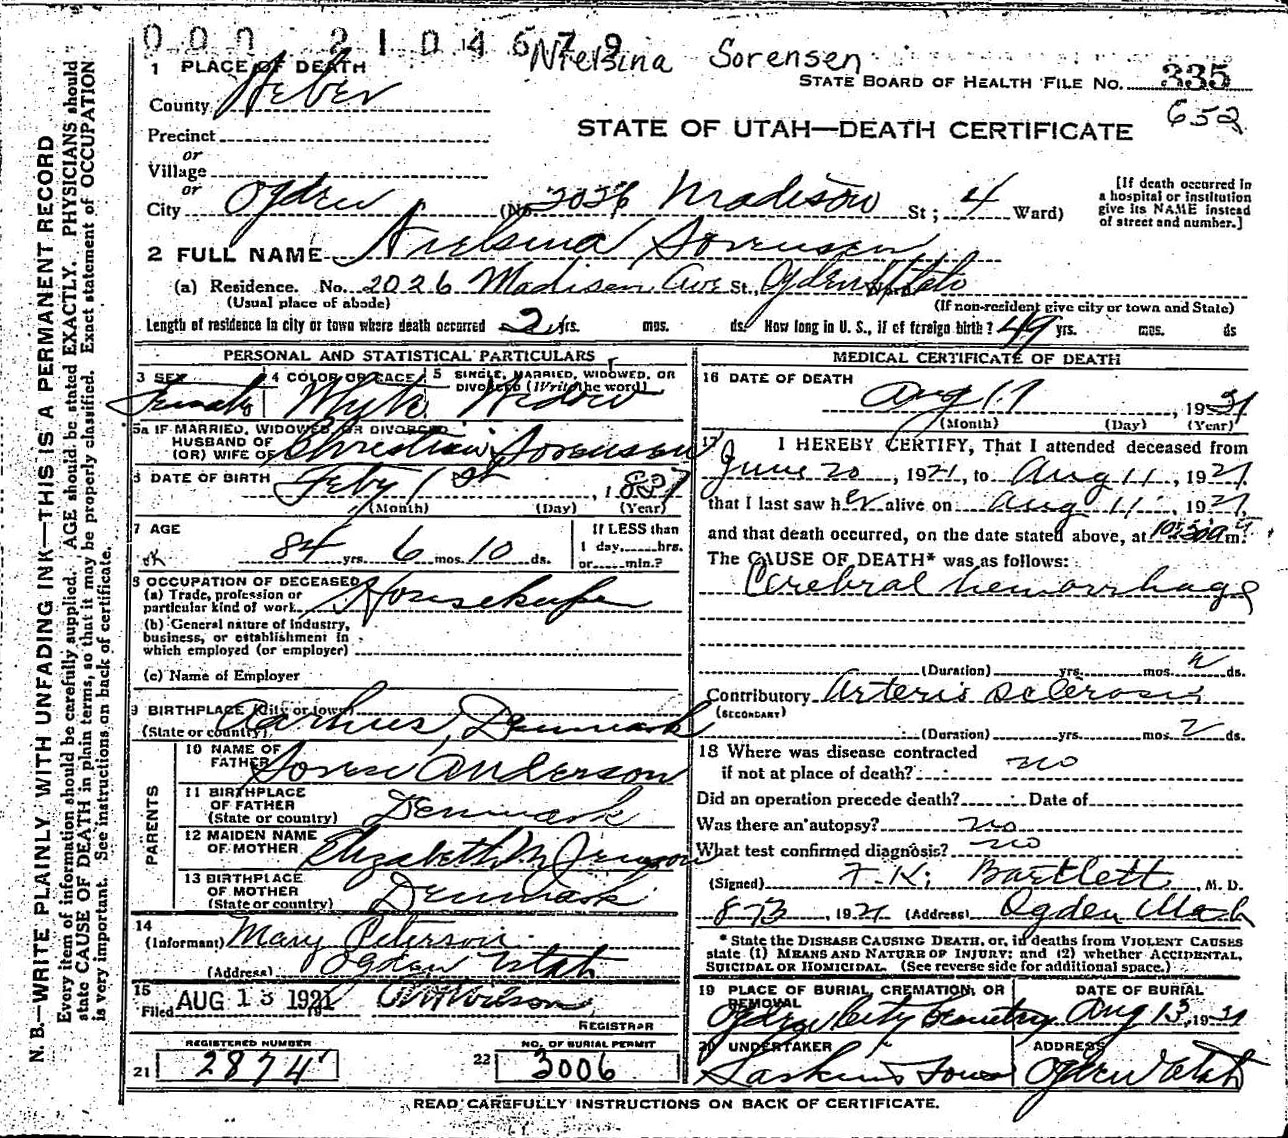 000 2104679
Nielsina Sorensen
1 PLACE OF DEATH
STATE BOARD OF HEALTH FILE NO. 335
County Heber
652
STATE OF UTAH—DEATH CERTIFICATE
Precinct
or
Village
or
City Ogden (No 2026 Madison St; 4 Ward)
[If death occurred in
a hospital or institution
give its NAME instead
of street and number.]
2 FULL NAME Nielsina Sorensen
(a) Residence. No. 2026 Madison Ave St., Ogden Utah
(Usual place of abode) (If non-resident give city or town and State)
Length of residence in city or town where death occurred 2 yrs. mos. ds. How long in U. S., if of foreign birth? 49 yrs. mos. ds
PERSONAL AND STATISTICAL PARTICULARS
3 SEX 4 COLOR OR RACE 5 SINGLE, MARRIED, WIDOWED, OR
DIVORCED (Write the word)
Female White Widow
5a IF MARRIED, WIDOWED, OR DIVORCED
HUSBAND OF
(OR) WIFE OF Christian Sorensen
6 DATE OF BIRTH Feby 1st, 1837
(Month) (Day) (Year)
7 AGE
84 yrs. 6 mos. 10 ds.
If LESS than
1 day, hrs.
or min.?
8 OCCUPATION OF DECEASED
(a) Trade, profession or
particular kind of work Housekeeper
(b) General nature of industry,
business, or establishment in
which employed (or employer)
(c) Name of Employer
9 BIRTHPLACE (City or town)
(State or country) Aarhus, Denmark
PARENTS
10 NAME OF
FATHER Anderson
11 BIRTHPLACE
OF FATHER
(State or country) Denmark
12 MAIDEN NAME
OF MOTHER Elizabeth M Jenson
13 BIRTHPLACE
OF MOTHER
(State or country) Denmark
14
(Informant) Mary Peterson
(Address) Ogden Utah
15
Filed AUG 13 1921 Wilson
REGISTRAR
REGISTERED NUMBER
21 2874
NO. OF BURIAL PERMIT
22 3006
MEDICAL CERTIFICATE OF DEATH
16 DATE OF DEATH
Aug 11, 1921
(Month) (Day) (Year)
17 I HEREBY CERTIFY, That I attended deceased from
June 20, 1921, to Aug 11, 1921
that I last saw her alive on Aug 11, 1921,
and that death occurred, on the date stated above, at 10:30a m.
The CAUSE OF DEATH* was as follows:
Cerebral hemorrhage
(Duration) yrs. mos. ds.
Contributory Arterio sclerosis
(SECONDARY)
(Duration) yrs. mos. 2 ds.
18 Where was disease contracted
if not at place of death? no
Did an operation precede death? Date of
Was there an autopsy? no
What test confirmed diagnosis? no
(Signed) F. K. Bartlett, M. D.
8-13, 1921 (Address) Ogden Utah
* State the DISEASE CAUSING DEATH, or, in deaths from VIOLENT CAUSES
state (1) MEANS AND NATURE OF INJURY; and (2) whether ACCIDENTAL,
SUICIDAL OR HOMICIDAL. (See reverse side for additional space.)
19 PLACE OF BURIAL, CREMATION, OR
REMOVAL
DATE OF BURIAL
Ogden City Cemetery Aug 13, 1921
20 UNDERTAKER ADDRESS
Larkins Sons Ogden Utah
READ CAREFULLY INSTRUCTIONS ON BACK OF CERTIFICATE.
N. B.—WRITE PLAINLY WITH UNFADING INK—THIS IS A PERMANENT RECORD
Every item of information should be carefully supplied. AGE should be stated EXACTLY. PHYSICIANS should
state CAUSE OF DEATH in plain terms, so that it may be properly classified. Exact statement of OCCUPATION
is very important. See instructions on back of certificate.